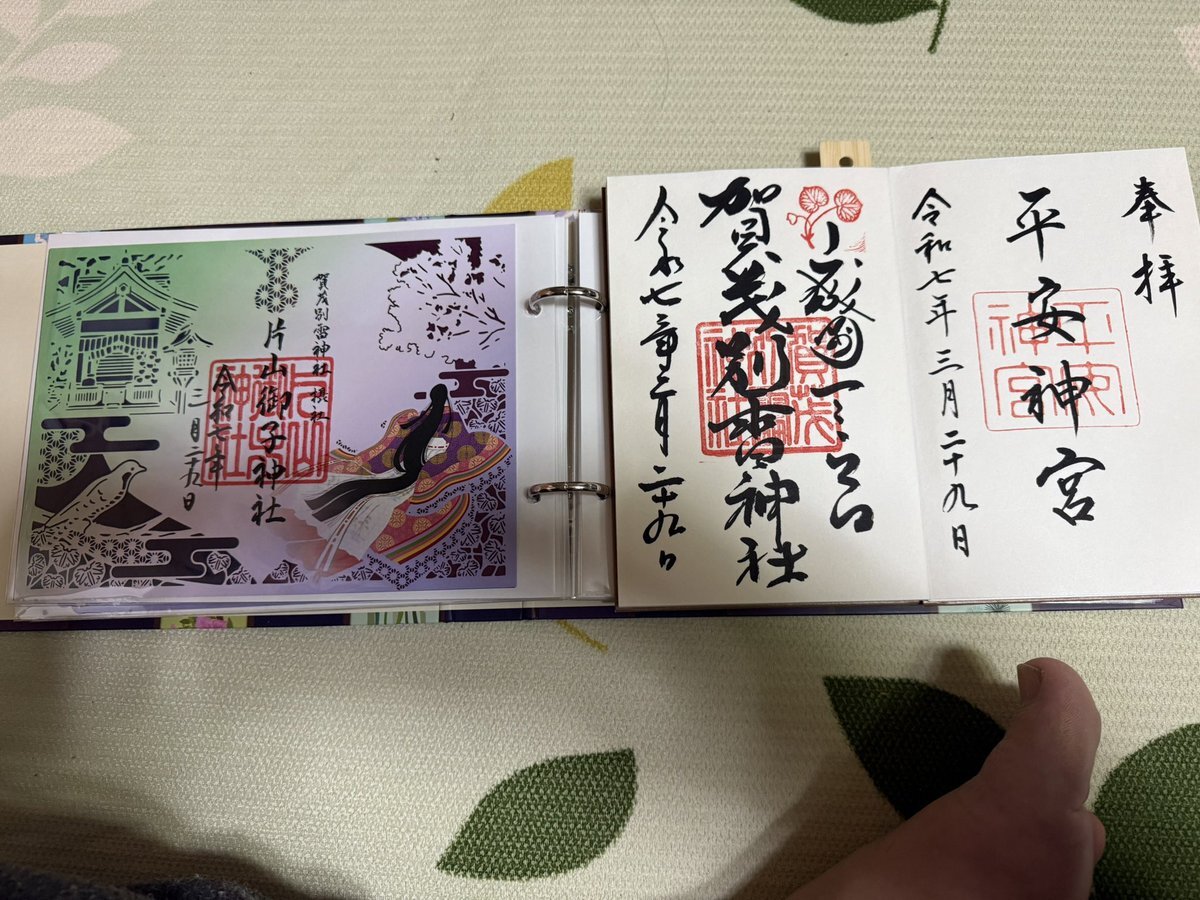 奉拝
平安神宮
平安神宮
令和七年三月二十九日
山城国一之宮
賀茂別雷神社
令和七年三月二十九日
賀茂別雷神社 摂社
片山御子神社
令和七年
三月 九日